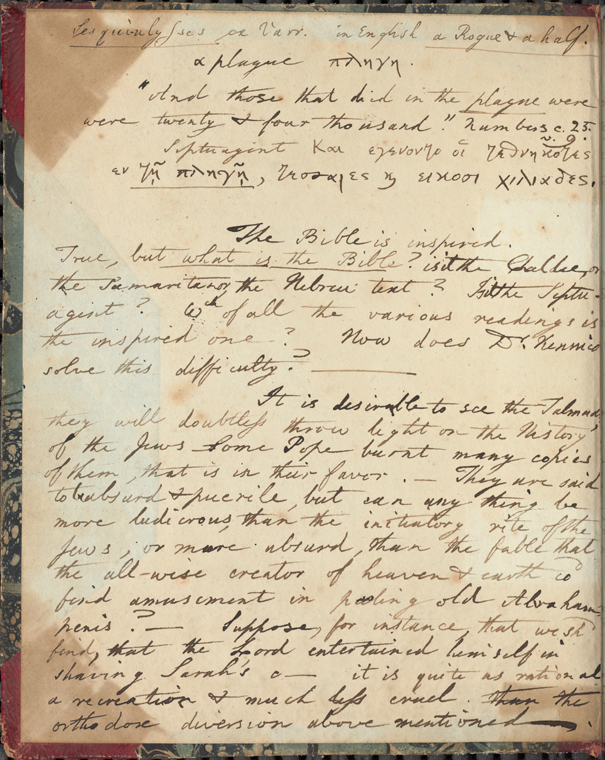 Sesquiulysses ex Varr. in English a Rogue & a half.
a plague πληγη.
"And those that died in the plague were
were twenty & four thousand." Numbers c. 25.
v. 9.
Septuagint Και εγενοντο οἱ τεθνηκοτες
εν τῇ πληγῇ, τεσσαρες ϗ εικοσι χιλιαδες.
The Bible is inspired.
True, but what is the Bible? is it the Chaldee, or
the Samaritan or the Hebrew text? Is it the Septu-
agint? Wch of all the various readings is
the inspired one? How does Dr. Kennico
solve this difficulty?
It is desirable to see the Talmud,
they will doubtless throw light on the History
of the Jews some Pope burnt many copies
of them, that is in their favor. — They are said
to b absurd & puerile, but can any thing be
more ludicrous, than the initiatory rite of the
Jews, or more absurd, than the fable that
the all-wise creator of heaven & earth cd
find amusement in peeling old Abraham
penis? — Suppose, for instance, that we shd
find, that the Lord entertained himself in
shaving Sarah's c— it is quite as rational
a recreation & much less cruel than the
orthodox diversion above mentioned —.